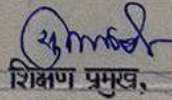 शिक्षण प्रमुख,